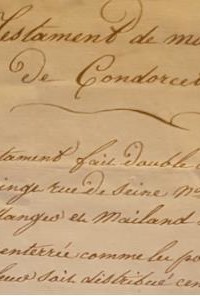 Testament de m
de Condorcet
tament fait double
inge rue de seine n
langes et Mailand
enterrée comme les p
leur soit distribué cen